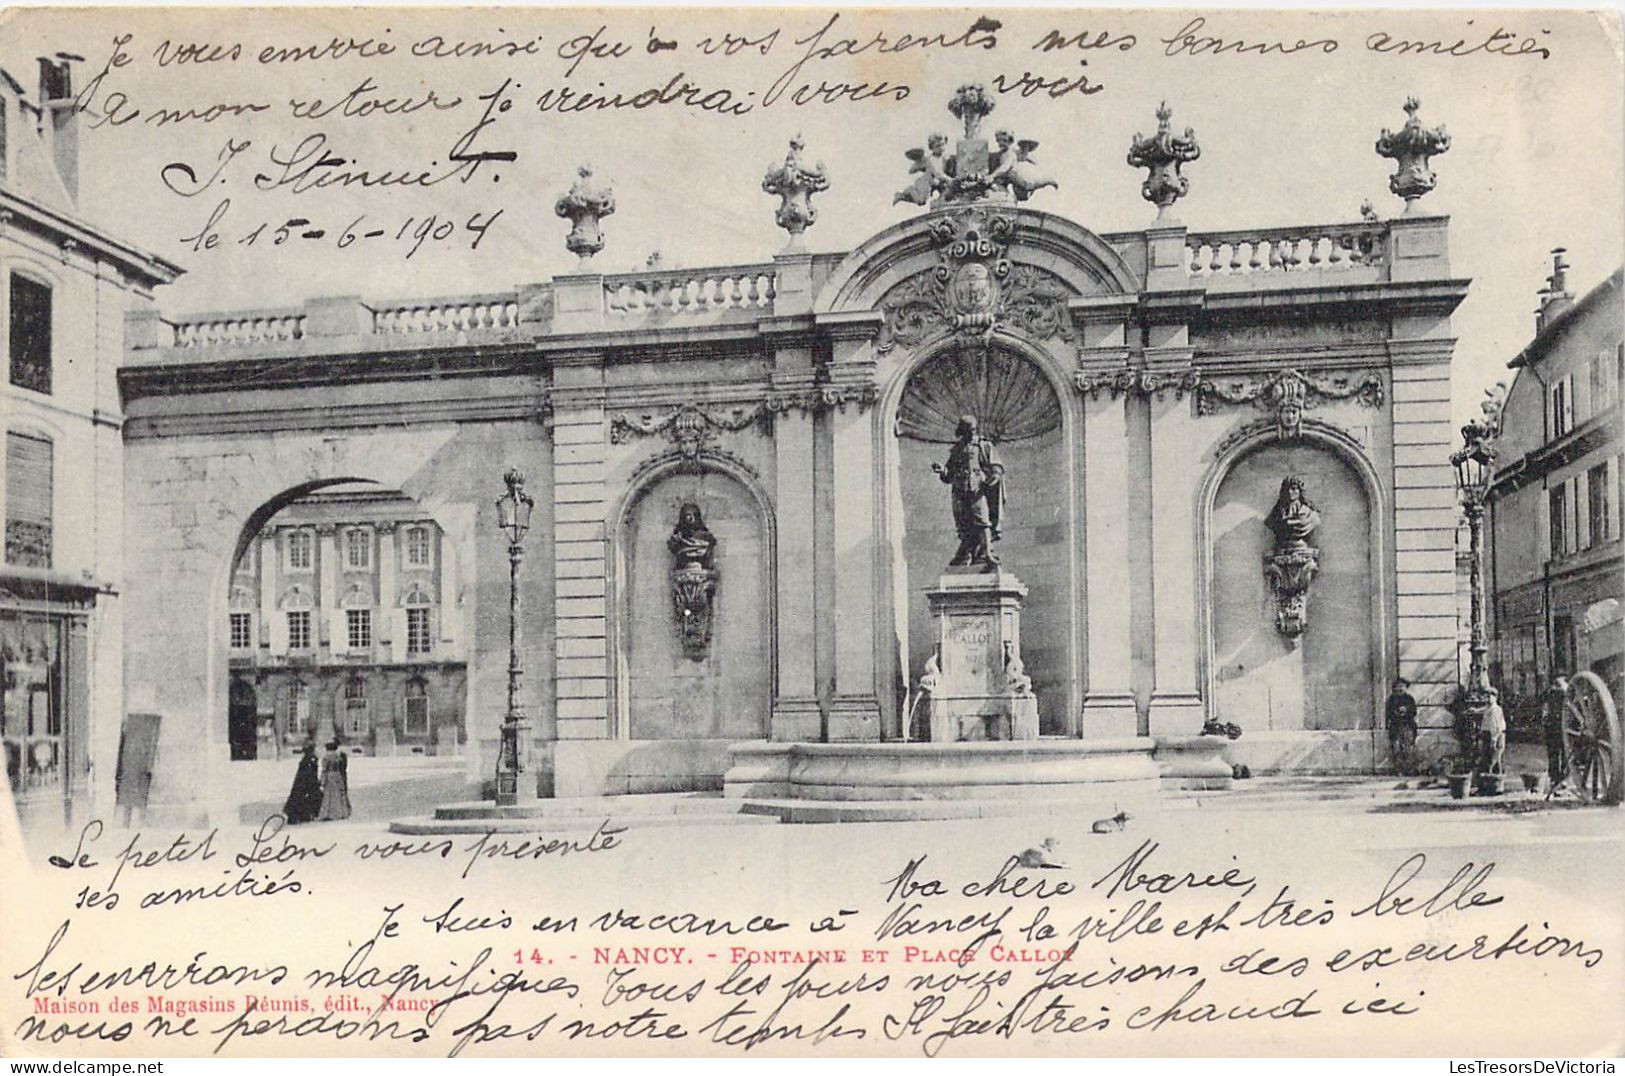 Je vous envoie ainsi qu'à vos parents mes bonnes amitiés
A mon retour je viendrai vous voir
J. Stinuit.
le 15-6-1904
CALLOT
Le petit Léon vous présente
ses amitiés.
Ma chère Marie,
Je suis en vacance à Nancy, la ville est très belle
14. - NANCY. - FONTAINE ET PLACE CALLOT
les envirrons magnifiques. Tous les jours nous faisons des excursions
Maison des Magasins Réunis, édit., Nancy
nous ne perdons pas notre temps Il fait très chaud ici
LesTresorsDeVictoria